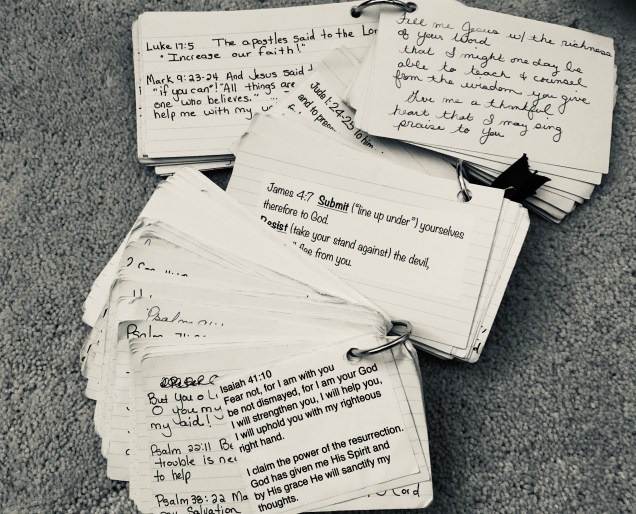 Luke 17:5 The apostles said to the Lor
• "Increase our faith!"
Mark 9:23-24 And Jesus said
"if you can"! "All things are
one who believes."
help me with my
Fill me Jesus w/ the richness
of your word
that I might one day be
able to teach & counsel
from the wisdom you give
Give me a thankful
heart that I may sing
praise to you
Jude 1:24-25 to him
and to
James 4:7 Submit ("line up under") yourselves
therefore to God.
Resist (take your stand against) the devil,
flee from you.
Psalm
Psalm
But you O
O you my
my aid!
Psalm 22:11
trouble is
to help
Psalm 38:22
Salvation
Lord
Isaiah 41:10
Fear not, for I am with you
be not dismayed, for I am your God
I will strengthen you, I will help you,
I will uphold you with my righteous
right hand.
I claim the power of the resurrection.
God has given me His Spirit and
by His grace He will sanctify my
thoughts.